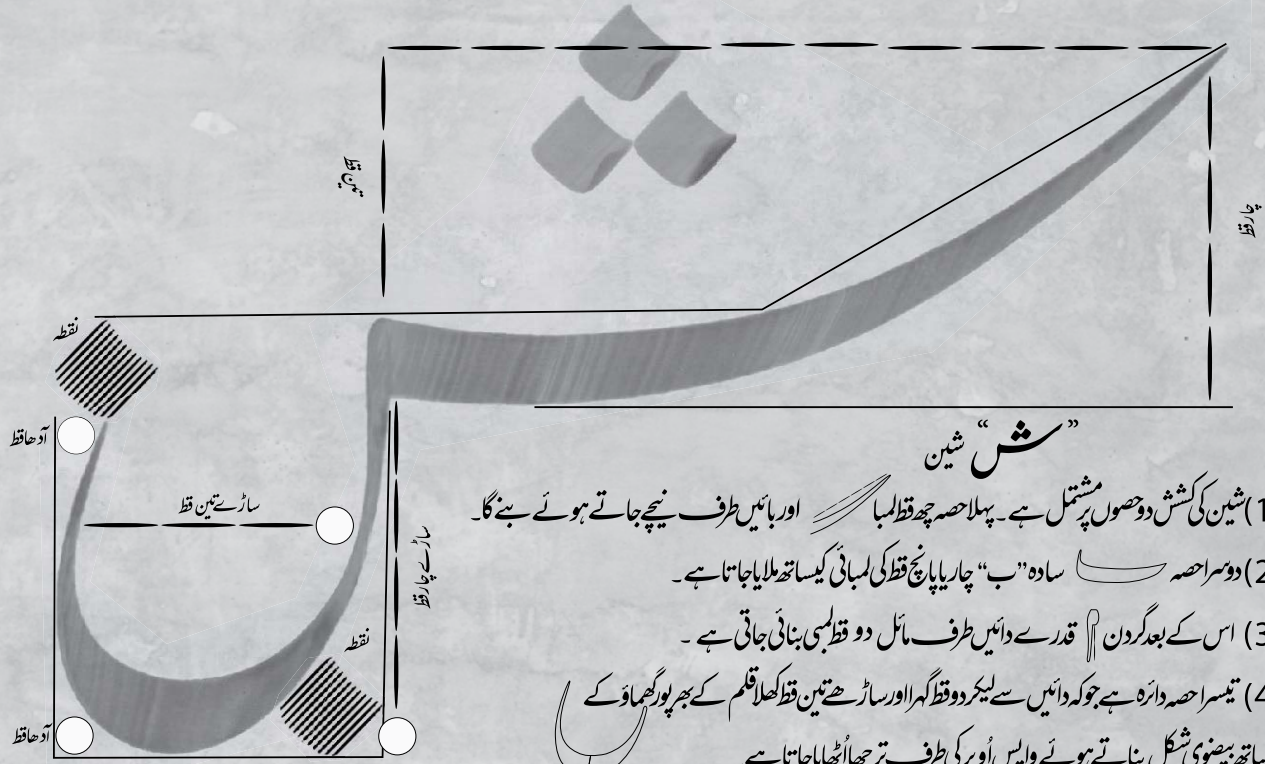 ش
تین قط
چار قط
نقطہ
آدھا قط
ساڑے تین قط
ساڑے چار قط
نقطہ
آدھا قط
”ش“ شین
1) شین کی کشش دو حصوں پر مشتمل ہے۔ پہلا حصہ چھ قط لمبا اور بائیں طرف نیچے جاتے ہوئے بنے گا۔
2) دوسرا حصہ سادہ ”ب“ چار یا پانچ قط کی لمبائی کیساتھ ملایا جاتا ہے۔
3) اس کے بعد گردن قدرے دائیں طرف مائل دو قط لمبی بنائی جاتی ہے۔
4) تیسرا حصہ دائرہ ہے جو کہ دائیں سے لیکر دو قط گہرا اور ساڑھے تین قط کھلا قلم کے بھرپور گھماؤ کے
ساتھ بیضوی شکل بناتے ہوئے واپس اُوپر کی طرف ترچھا اُٹھایا جاتا ہے